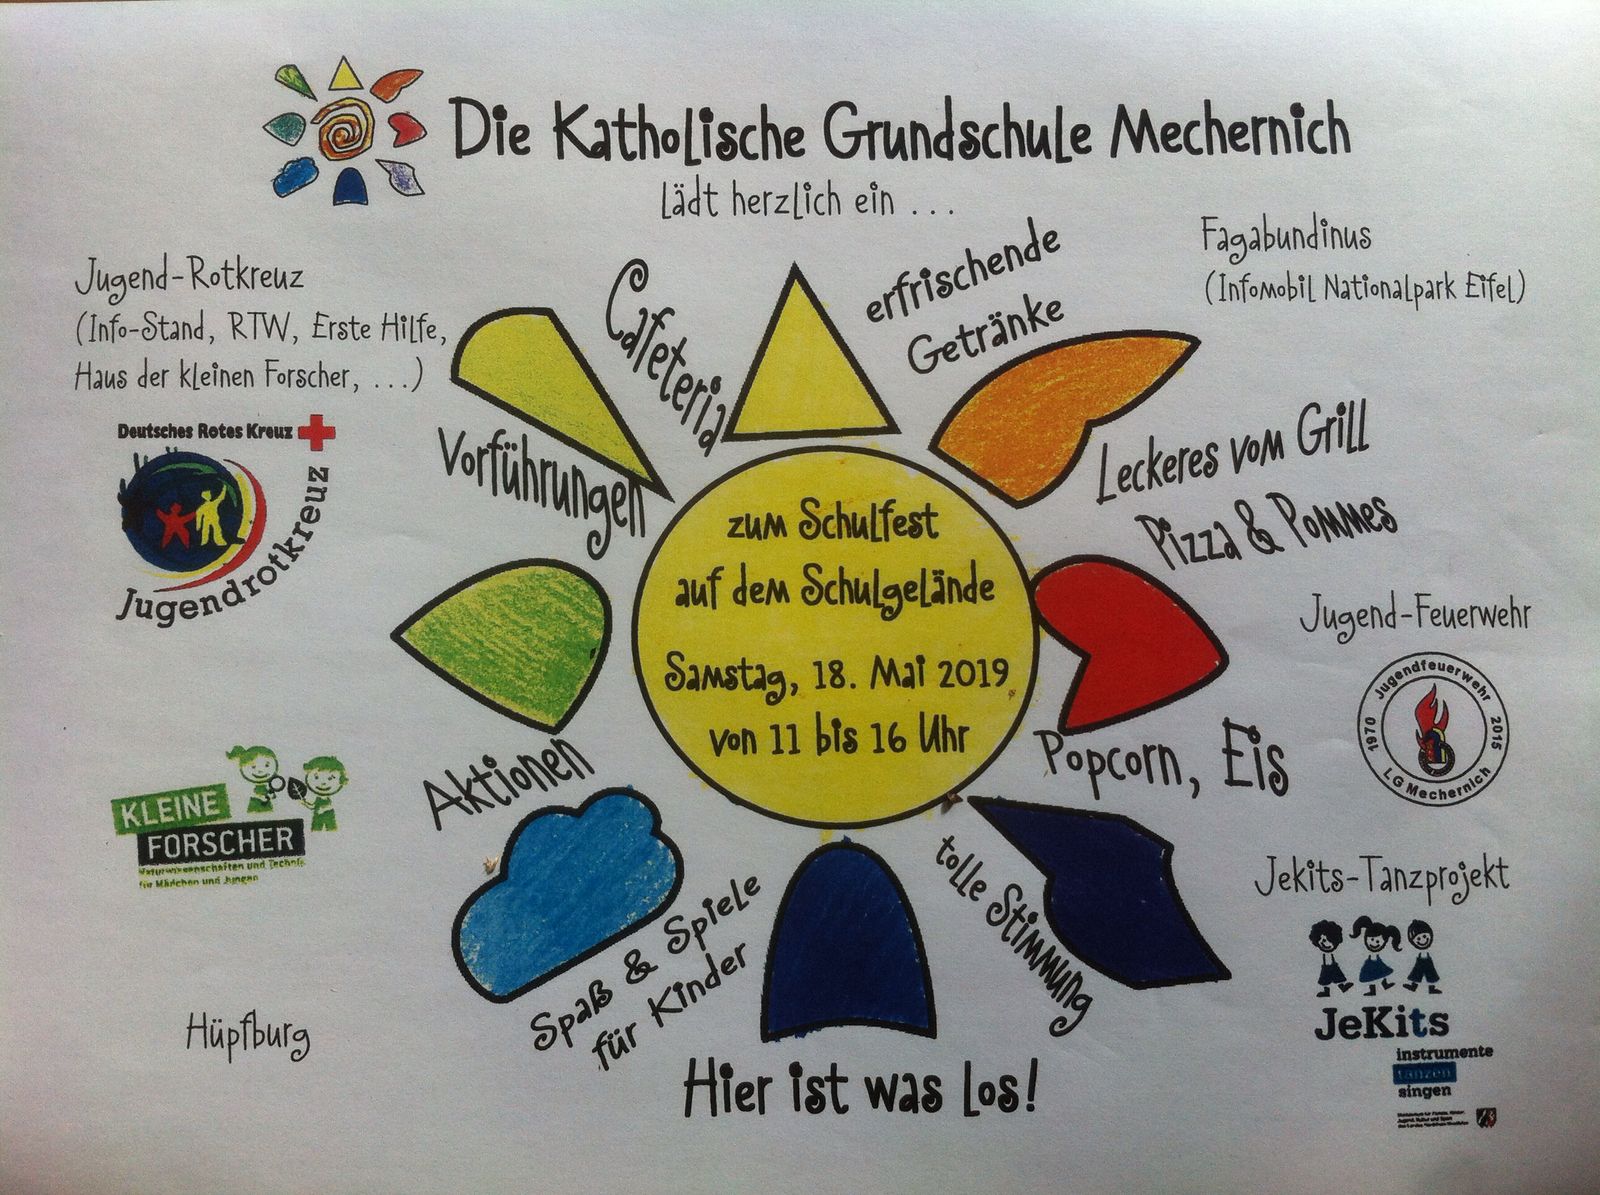 Die Katholische Grundschule Mechernich
lädt herzlich ein ...
Jugend-Rotkreuz
(Info-Stand, RTW, Erste Hilfe,
Haus der kleinen Forscher, ...)
Deutsches Rotes Kreuz
Jugendrotkreuz
Vorführungen
Cafeteria
erfrischende
Getränke
Fagabundinus
(Infomobil Nationalpark Eifel)
Leckeres vom Grill
Pizza & Pommes
zum Schulfest
auf dem Schulgelände
Samstag, 18. Mai 2019
von 11 bis 16 Uhr
Jugend-Feuerwehr
Jugendfeuerwehr
1970 2015
LG Mechernich
Popcorn, Eis
Aktionen
KLEINE
FORSCHER
Naturwissenschaften und Technik
für Mädchen und Jungen
Spaß & Spiele
für Kinder
tolle Stimmung
Jekits-Tanzprojekt
JeKits
instrumente
tanzen
singen
Hüpfburg
Hier ist was los!